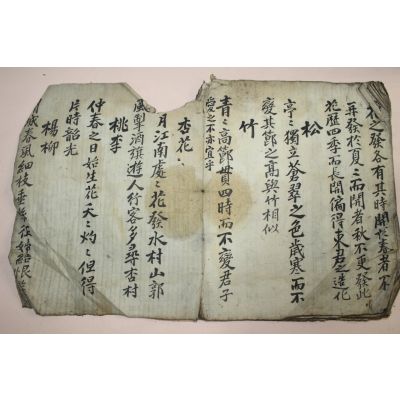 花之發各有其時開於春者不
再發於夏夏而開者秋不更發此
花歷四季而長開偏得東君之造化
松
亭亭獨立蒼翠之色歲寒而不
變其節之高與竹相似
竹
青青高節貫四時而不變君子
愛之不亦宜乎
杏花
月江南處處花發水村山郭
風犁酒旗遊人行客多尋杏村
桃李
仲春之日始生花夭夭灼灼但得
片時韶光
楊柳
春風細枝垂